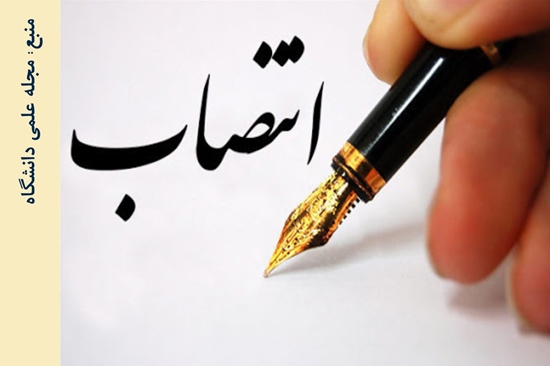 انتصاب
منبع: مجله علمی دانشگاه